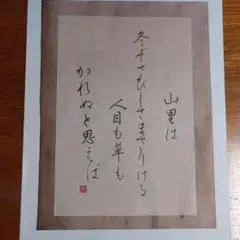 山里は
冬ぞさびしさまさりける
人目も草も
かれぬと思へば